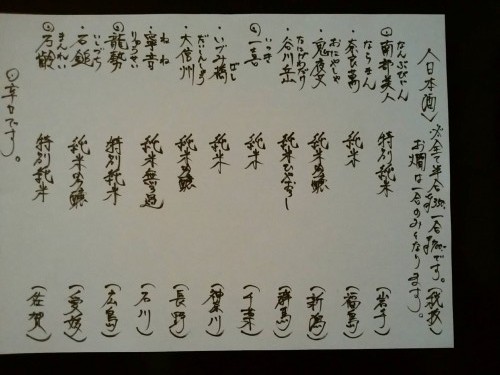 〈日本酒〉 全て半合 一合 です。(税抜)
お燗は一合のみとなります。
なんぶびじん
◎南部美人 特別純米 (岩手)
ならまん
・奈良萬 純米 (福島)
おにやしゃ
・鬼夜叉 純米吟醸 (新潟)
たにがわだけ
・谷川岳 純米ひやおろし (群馬)
いっき
◎一喜 純米 (千葉)
ばし
・いづみ橋 純米 (神奈川)
だいしんしゅう
・大信州 純米吟醸 (長野)
ねね
・寧音 純米無ろ過 (石川)
りゅうせい
◎龍勢 特別純米 (広島)
いしづち
・石鎚 純米吟醸 (愛媛)
まんれい
・万齢 特別純米 (佐賀)
◎辛口です。